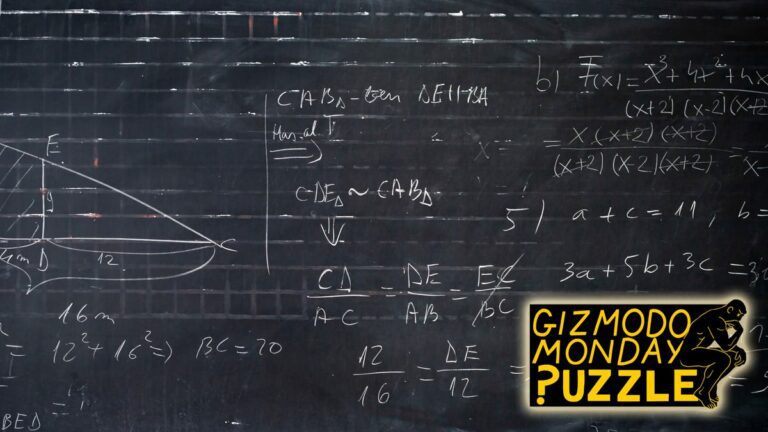 E
9
4m D 12 C
16m
= 12² + 16² => BC = 20
BED =
CAB△-ben DE||BA
CDE△ ~ CAB△
⇓
CD/AC = DE/AB = EC/BC
12/16 = DE/12 =
b) F(x) = x³+4x²+4x / (x+2)(x-2)(x+2)
x = = x.(x+2)(x+2) / (x+2)(x-2)(x+2) = x-
5) a + c = 11, b =
3a + 5b + 3c = 3
GIZMODO
MONDAY
PUZZLE